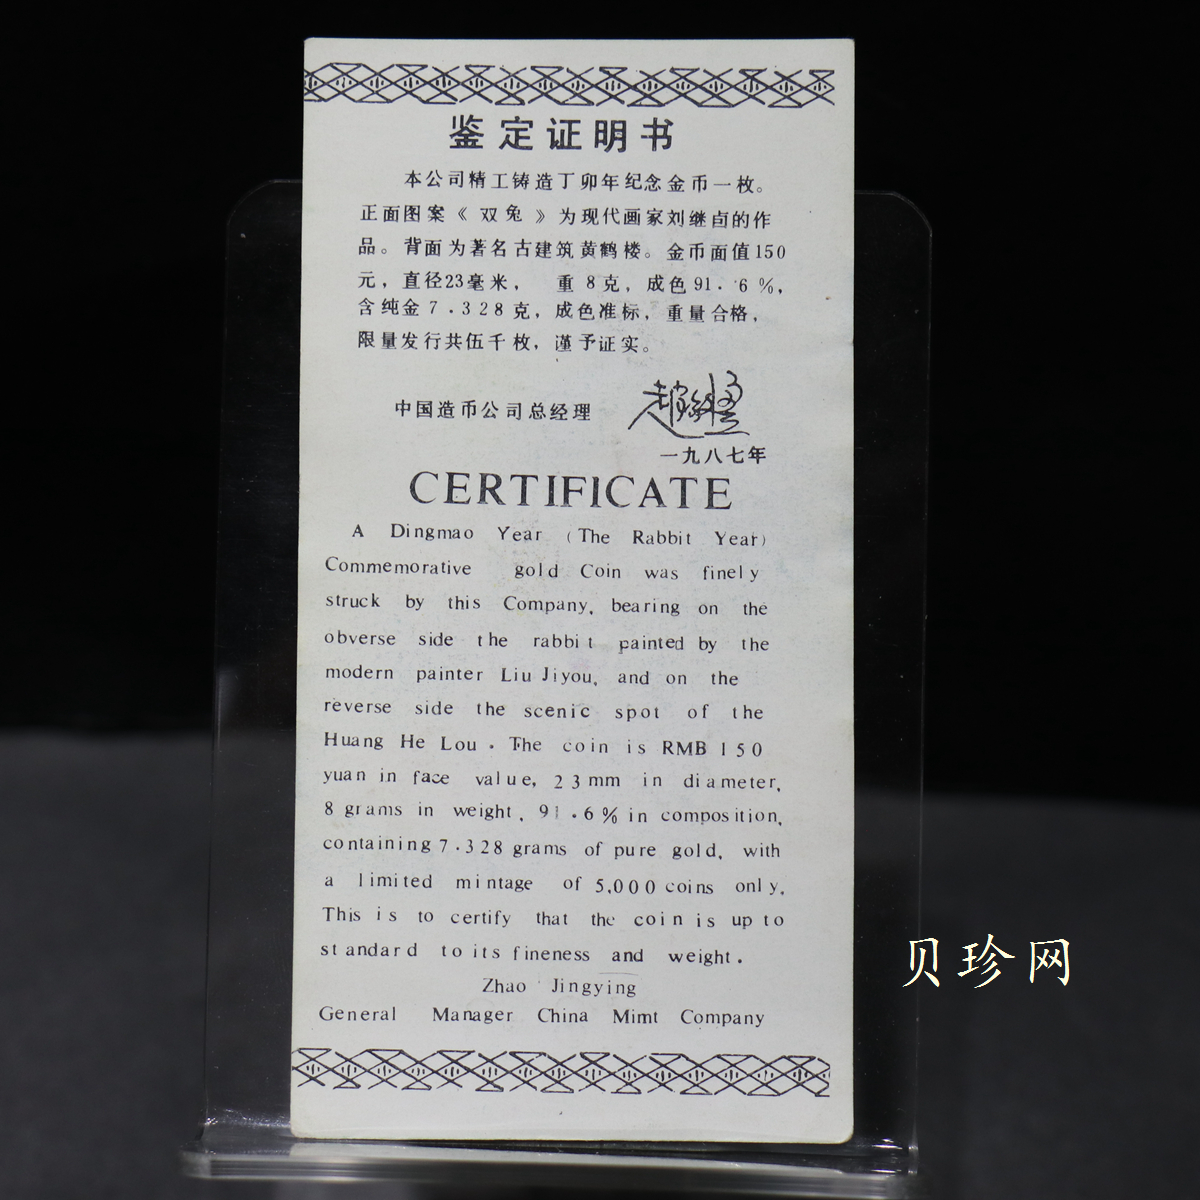 鉴定证明书
本公司精工铸造丁卯年纪念金币一枚。
正面图案《双兔》为现代画家刘继卣的作
品。背面为著名古建筑黄鹤楼。金币面值150
元，直径23毫米， 重8克，成色91.6%，
含纯金7.328克，成色准标，重量合格，
限量发行共伍千枚，谨予证实。
中国造币公司总经理
一九八七年
CERTIFICATE
A Dingmao Year (The Rabbit Year)
Commemorative gold Coin was finely
struck by this Company, bearing on the
obverse side the rabbit painted by the
modern painter Liu Jiyou, and on the
reverse side the scenic spot of the
Huang He Lou. The coin is RMB 150
yuan in face value, 23mm in diameter,
8 grams in weight, 91.6% in composition,
containing 7.328 grams of pure gold, with
a limited mintage of 5,000 coins only.
This is to certify that the coin is up to
standard to its fineness and weight.
Zhao Jingying
General Manager China Mimt Company
贝珍网